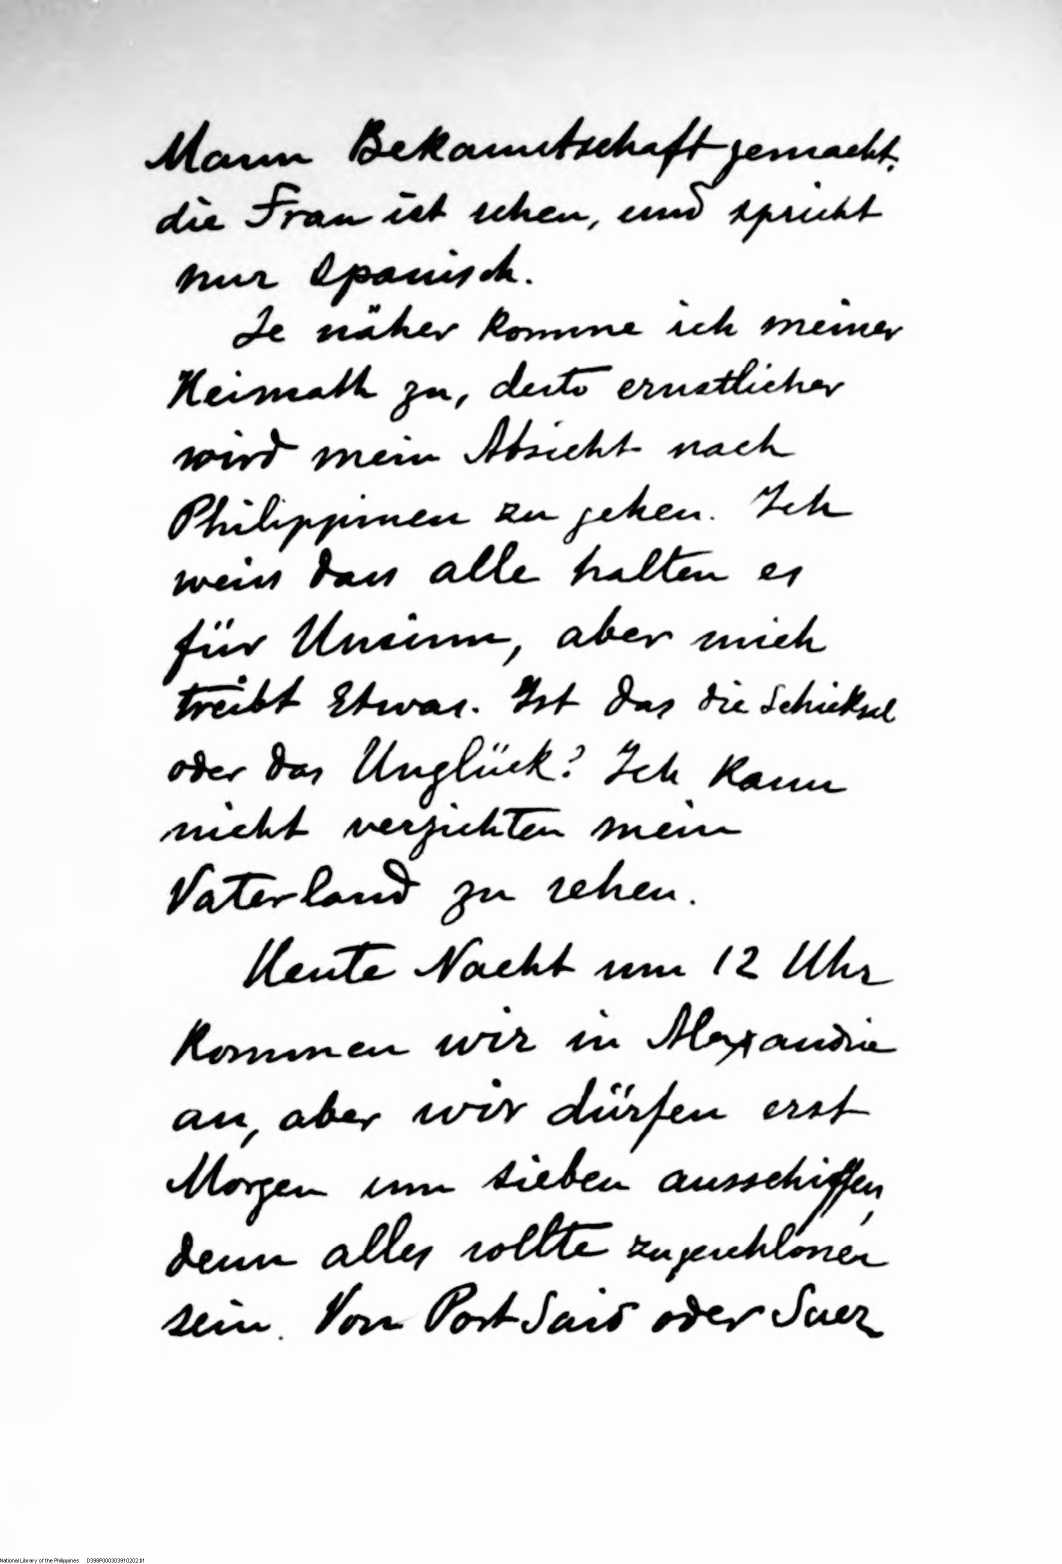 Mann Bekanntschaft gemacht.
die Frau ist schen, und spricht
nur Spanisch.
Je näher komme ich meiner
Heimath zu, desto ernstlicher
wird mein Absicht nach
Philippinen zu gehen. Ich
weiss dass alle halten es
für Unsinn, aber mich
treibt Etwas. Ist das die Schicksel
oder das Unglück? Ich kann
nicht verzichten mein
Vaterland zu sehen.
Heute Nacht um 12 Uhr
kommen wir in Alexandrie
an, aber wir dürfen erst
Morgen um sieben ausschiffen,
denn alles sollte zugeschlossen
sein. Von Port Said oder Suez
National Library of the Philippines D398P000303910202.tif